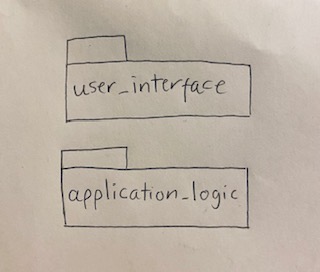 user_interface
application_logic